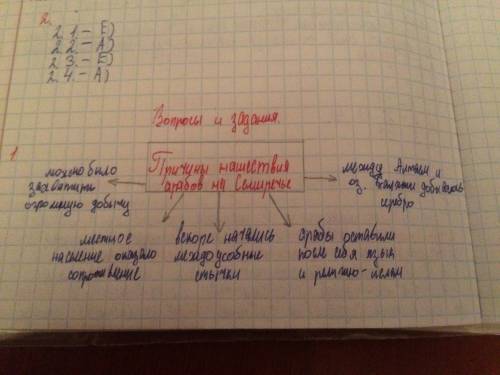 2.
2.1.– Е)
2.2.– А)
2.3.– Е)
2.4.– А)
Вопросы и задания.
1.
Причины нашествия
арабов на Семиречье
можно было
захватить
огромную добычу
между Алтаем и
оз. Балхаш добывалось
серебро
местное
население оказало
сопротивление
вскоре начались
междоусобные
стычки
арабы оставили
после себя язык
и религию-ислам